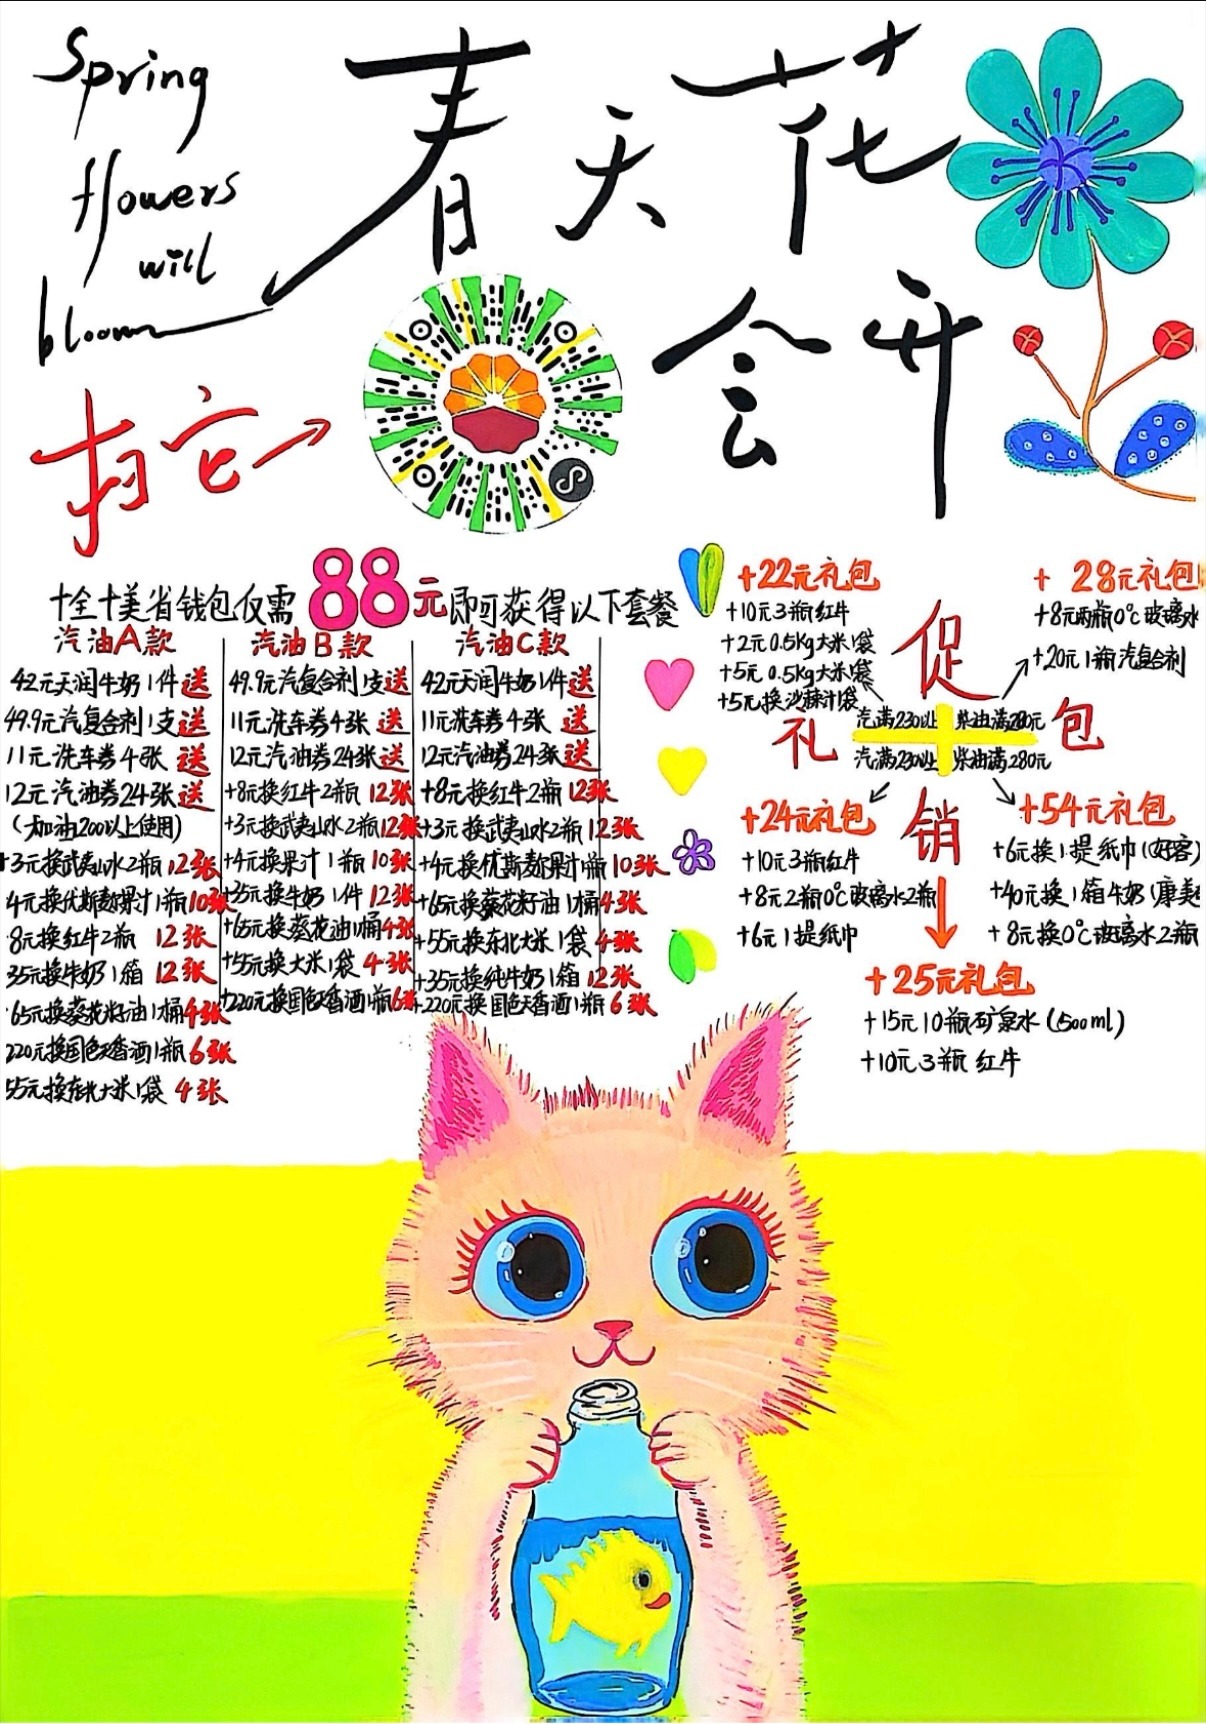 Spring
flowers
will
bloom
春天花
会开
扫它→
十全十美省钱包仅需88元即可获得以下套餐
汽油A款
42元天润牛奶1件送
49.9元汽复合剂1支送
11元洗车券4张 送
12元汽油券24张送
(加油200以上使用)
+3元换武夷山水2瓶12张
4元换优斯麦果汁1瓶10张
8元换红牛2瓶 12张
35元换牛奶1箱 12张
65元换葵花籽油1桶4张
220元换国色天香酒1瓶6张
55元换东北大米1袋 4张
汽油B款
49.9元汽复合剂1支送
11元洗车券4张 送
12元汽油券24张送
+8元换红牛2瓶 12张
+3元换武夷山水2瓶12张
+4元换果汁1瓶 10张
+35元换牛奶1件 12张
+65元换葵花油1桶4张
+55元换大米1袋 4张
+220元换国色天香酒1瓶6张
汽油C款
42元天润牛奶1件送
11元洗车券4张 送
12元汽油券24张送
+8元换红牛2瓶12张
+3元换武夷山水2瓶12张
+4元换优斯麦果汁1瓶10张
+65元换葵花籽油1桶4张
+55元换东北大米1袋 4张
+35元换纯牛奶1箱12张
+220元换国色天香酒1瓶6张
促
销
礼
包
汽满230以上
柴油满280元
汽满230以上
柴油满280元
+22元礼包
+10元3瓶红牛
+2元0.5kg大米1袋
+5元0.5kg大米1袋
+5元换沙棘汁1袋
+28元礼包
+8元两瓶0℃玻璃水
+20元1瓶汽复合剂
+24元礼包
+10元3瓶红牛
+8元2瓶0℃玻璃水2瓶
+6元1提纸巾
+54元礼包
+6元换1提纸巾(好客)
+40元换1箱牛奶(康美
+8元换0℃玻璃水2瓶
+25元礼包
+15元10瓶矿泉水(500ml)
+10元3瓶红牛